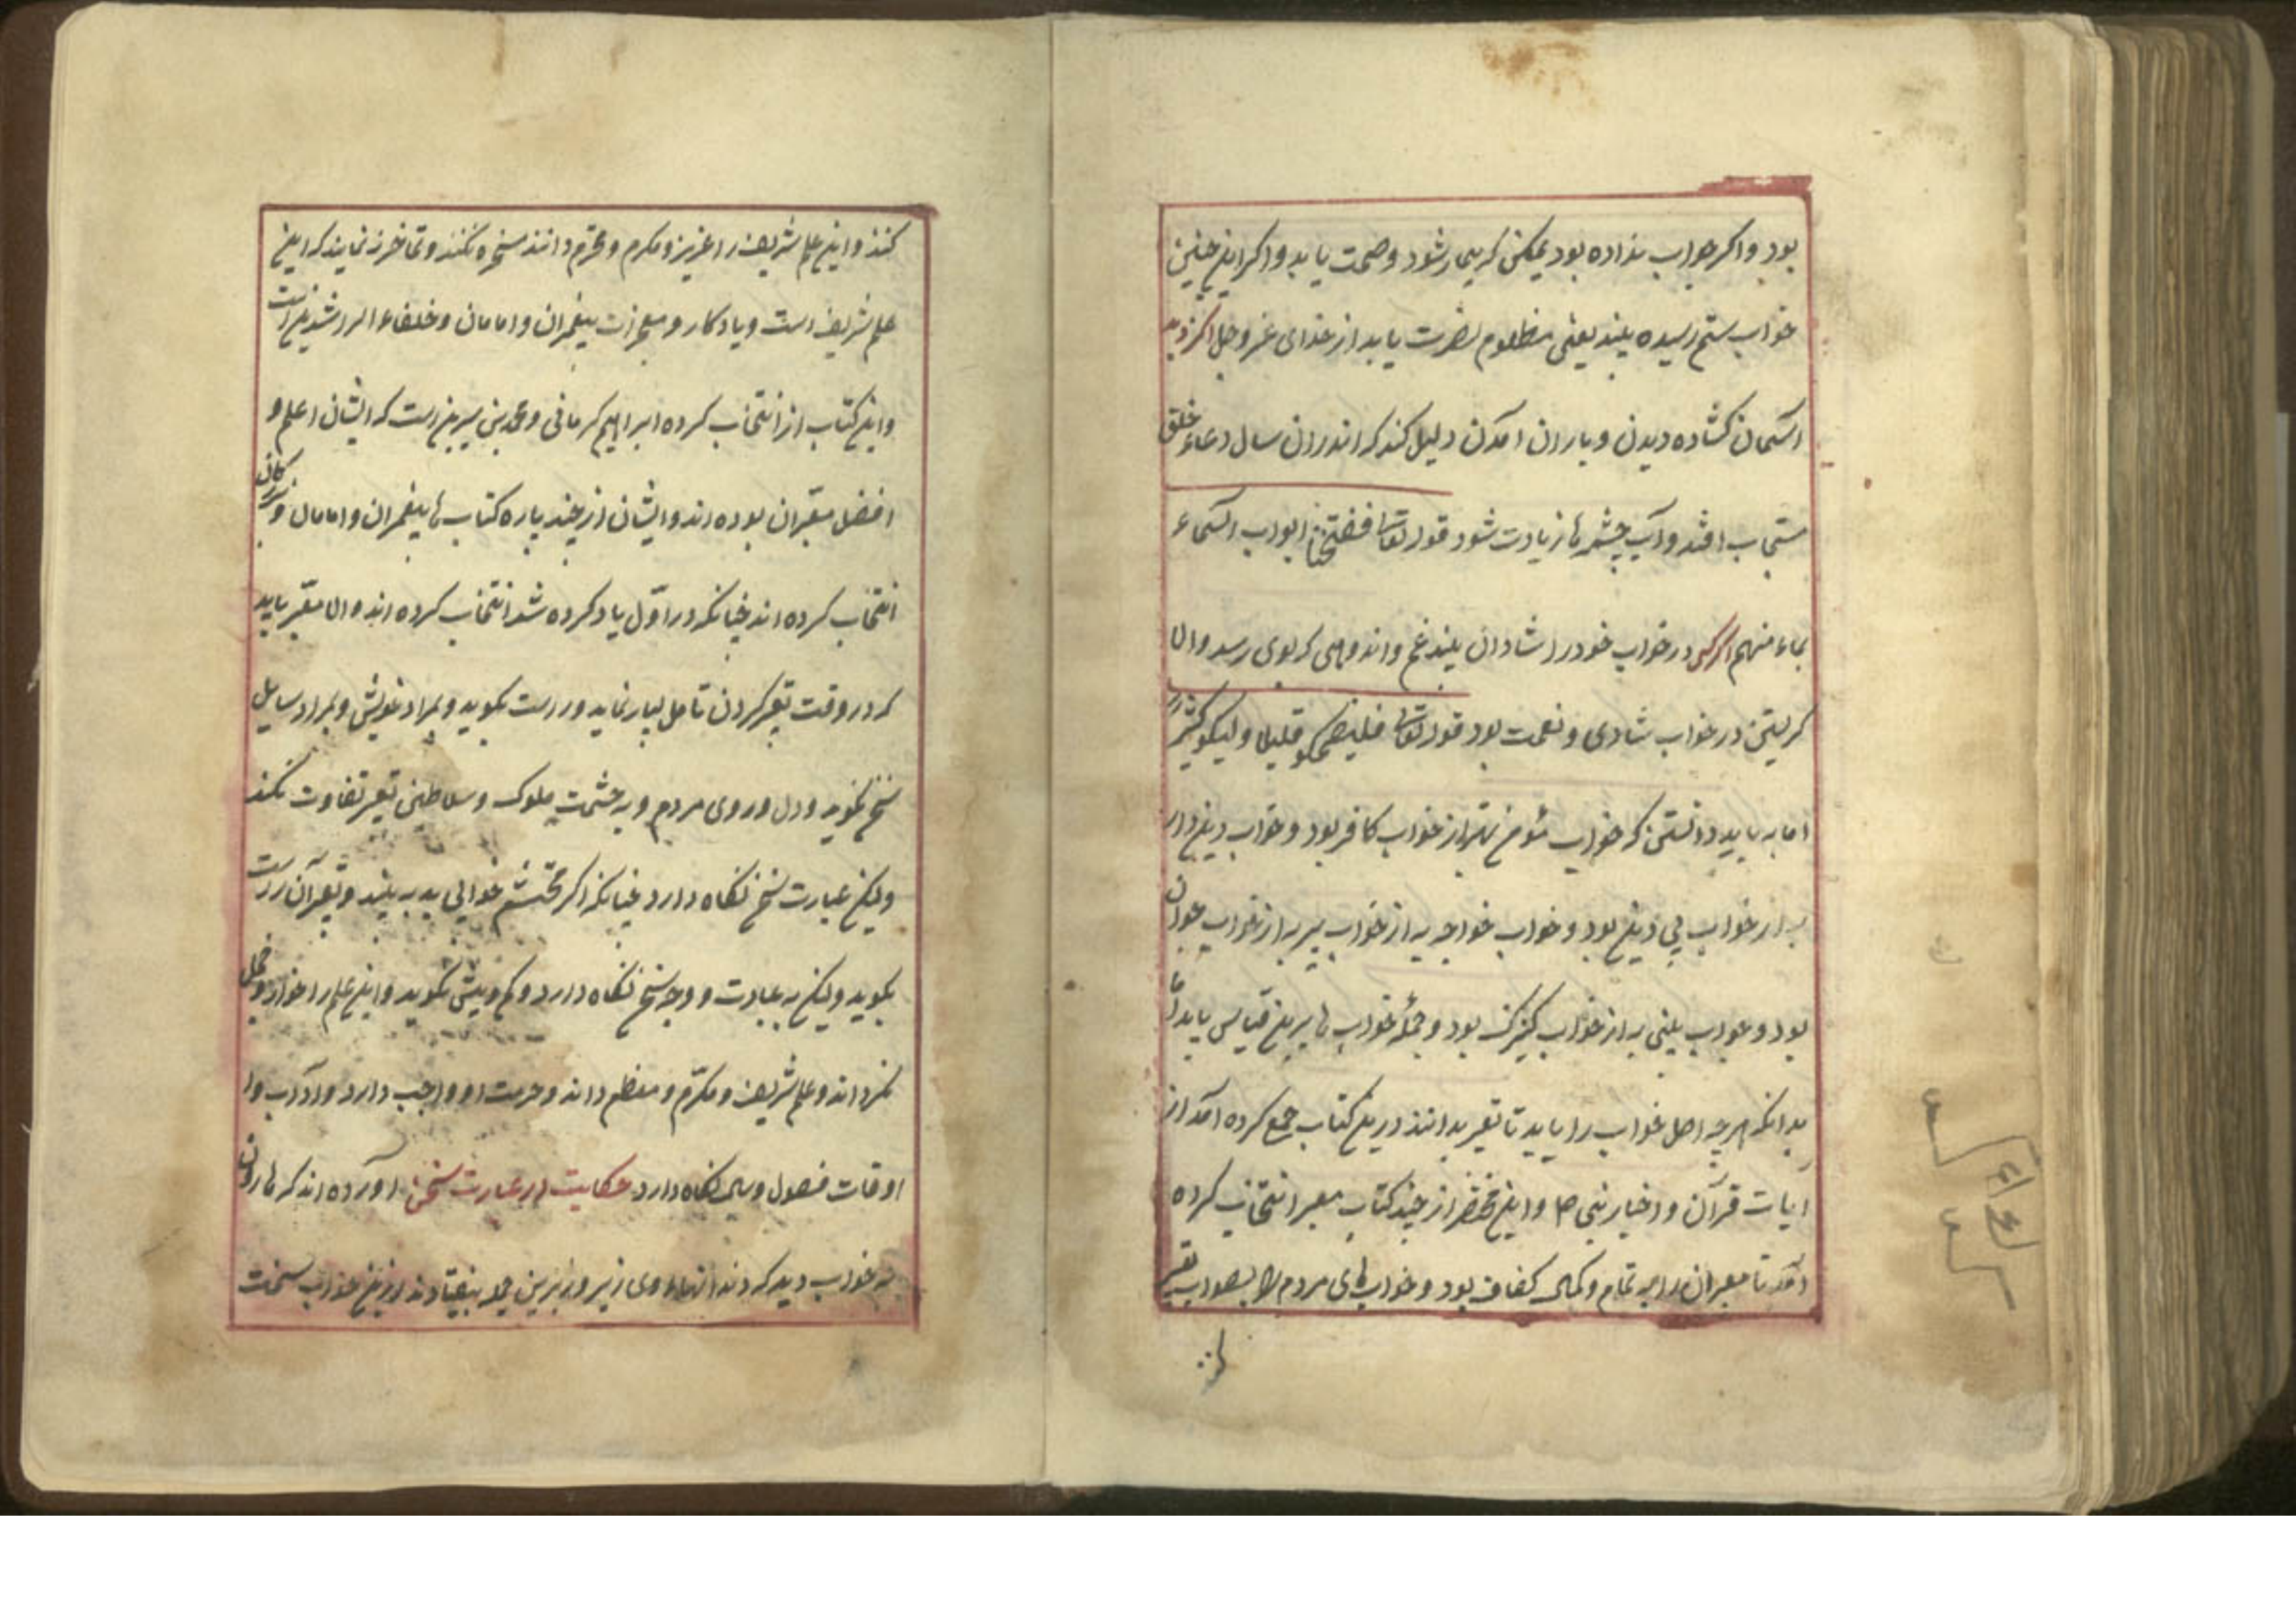 بود و اکر جواب نداده بود یمکن که بیمار شود و صحت یابد و اکر این چنین
خواب ستم رسیده بیند یعنی مظلوم نصرت یابد از خدای عز و جل اکر در
آسمان کشاده دیدن و باران آمدن دلیل کند که اندران سال دعاء خلق
مستجاب افتد و آب چشمه ها زیادت شود قوله تعالی ففتحنا ابواب السماء
بماء منهمر اکر کسی در خواب خود را شادان بیند غم و اندوهی که بوی رسد والا
کریستن در خواب شادی و نعمت بود قوله تعالی فلیضحکو قلیلا ولیبکو کثیرا
اما به باید دانستن که خواب مؤمن بهتر از خواب کافر بود و خواب دین دار
به از خواب بی دین بود و خواب خواجه به از خواب پیر به از خواب جوان
بود و خواب بینی به از خواب کنیزک بود و جملهٔ خواب ها برین قیاس باید
بدانکه هر چه اصل خواب را باید تا تعبیر بدانند درین کتاب جمع کرده آمد از
آیات قرآن و اخبار نبی ص و این مختصر از چند کتاب معبر انتخاب کرده
آمد تا معبران را به تمام و کمال کفاف بود و خواب های مردم را بصواب تعبیر
کنند و این علم شریف را عزیز و مکرم و محترم دانند سخره نکنند و تماخره ننمایند که این
علم شریف است و یادکار و معجزات پیغمبران و امامان و خلفاء الراشدین است
و این کتاب از انتخاب کرده ابراهیم کرمانی و محمد بن سیرین است که ایشان اعلم و
افضل معبّران بوده اند و ایشان از چند پاره کتاب ها پیغمبران و امامان و بزرکان
انتخاب کرده اند چنانکه در اوّل یاد کرده شد انتخاب کرده اند والا معبّر باید
که در وقت تعبیر کردن تامل بسیار نماید و راست بکوید و بمراد خویش و بمراد سایل
سخن نکوید و دل و روی مردم و به حشمت ملوک و سلاطین تعبیر تفاوت نکند
ولیکن عبارت سخن نکاه دارد چنانکه اکر محتشم خوابی بد به بیند و تعبیر آن راست
بکوید ولیکن به عبارت و وجه سخن نکاه دارد و کم و بیش نکوید و این علم را خوار و خجل
نکرداند و علم شریف و مکرّم و معظم داند و حرمت او واجب دارد و آداب و
اوقات فصول و سال نکاه دارد حکایت در عبارت سخن آورده اند که هارون
به خواب دید که دندانهاء وی زیر و زبرین جمله بیفتادند ازین خواب سخت